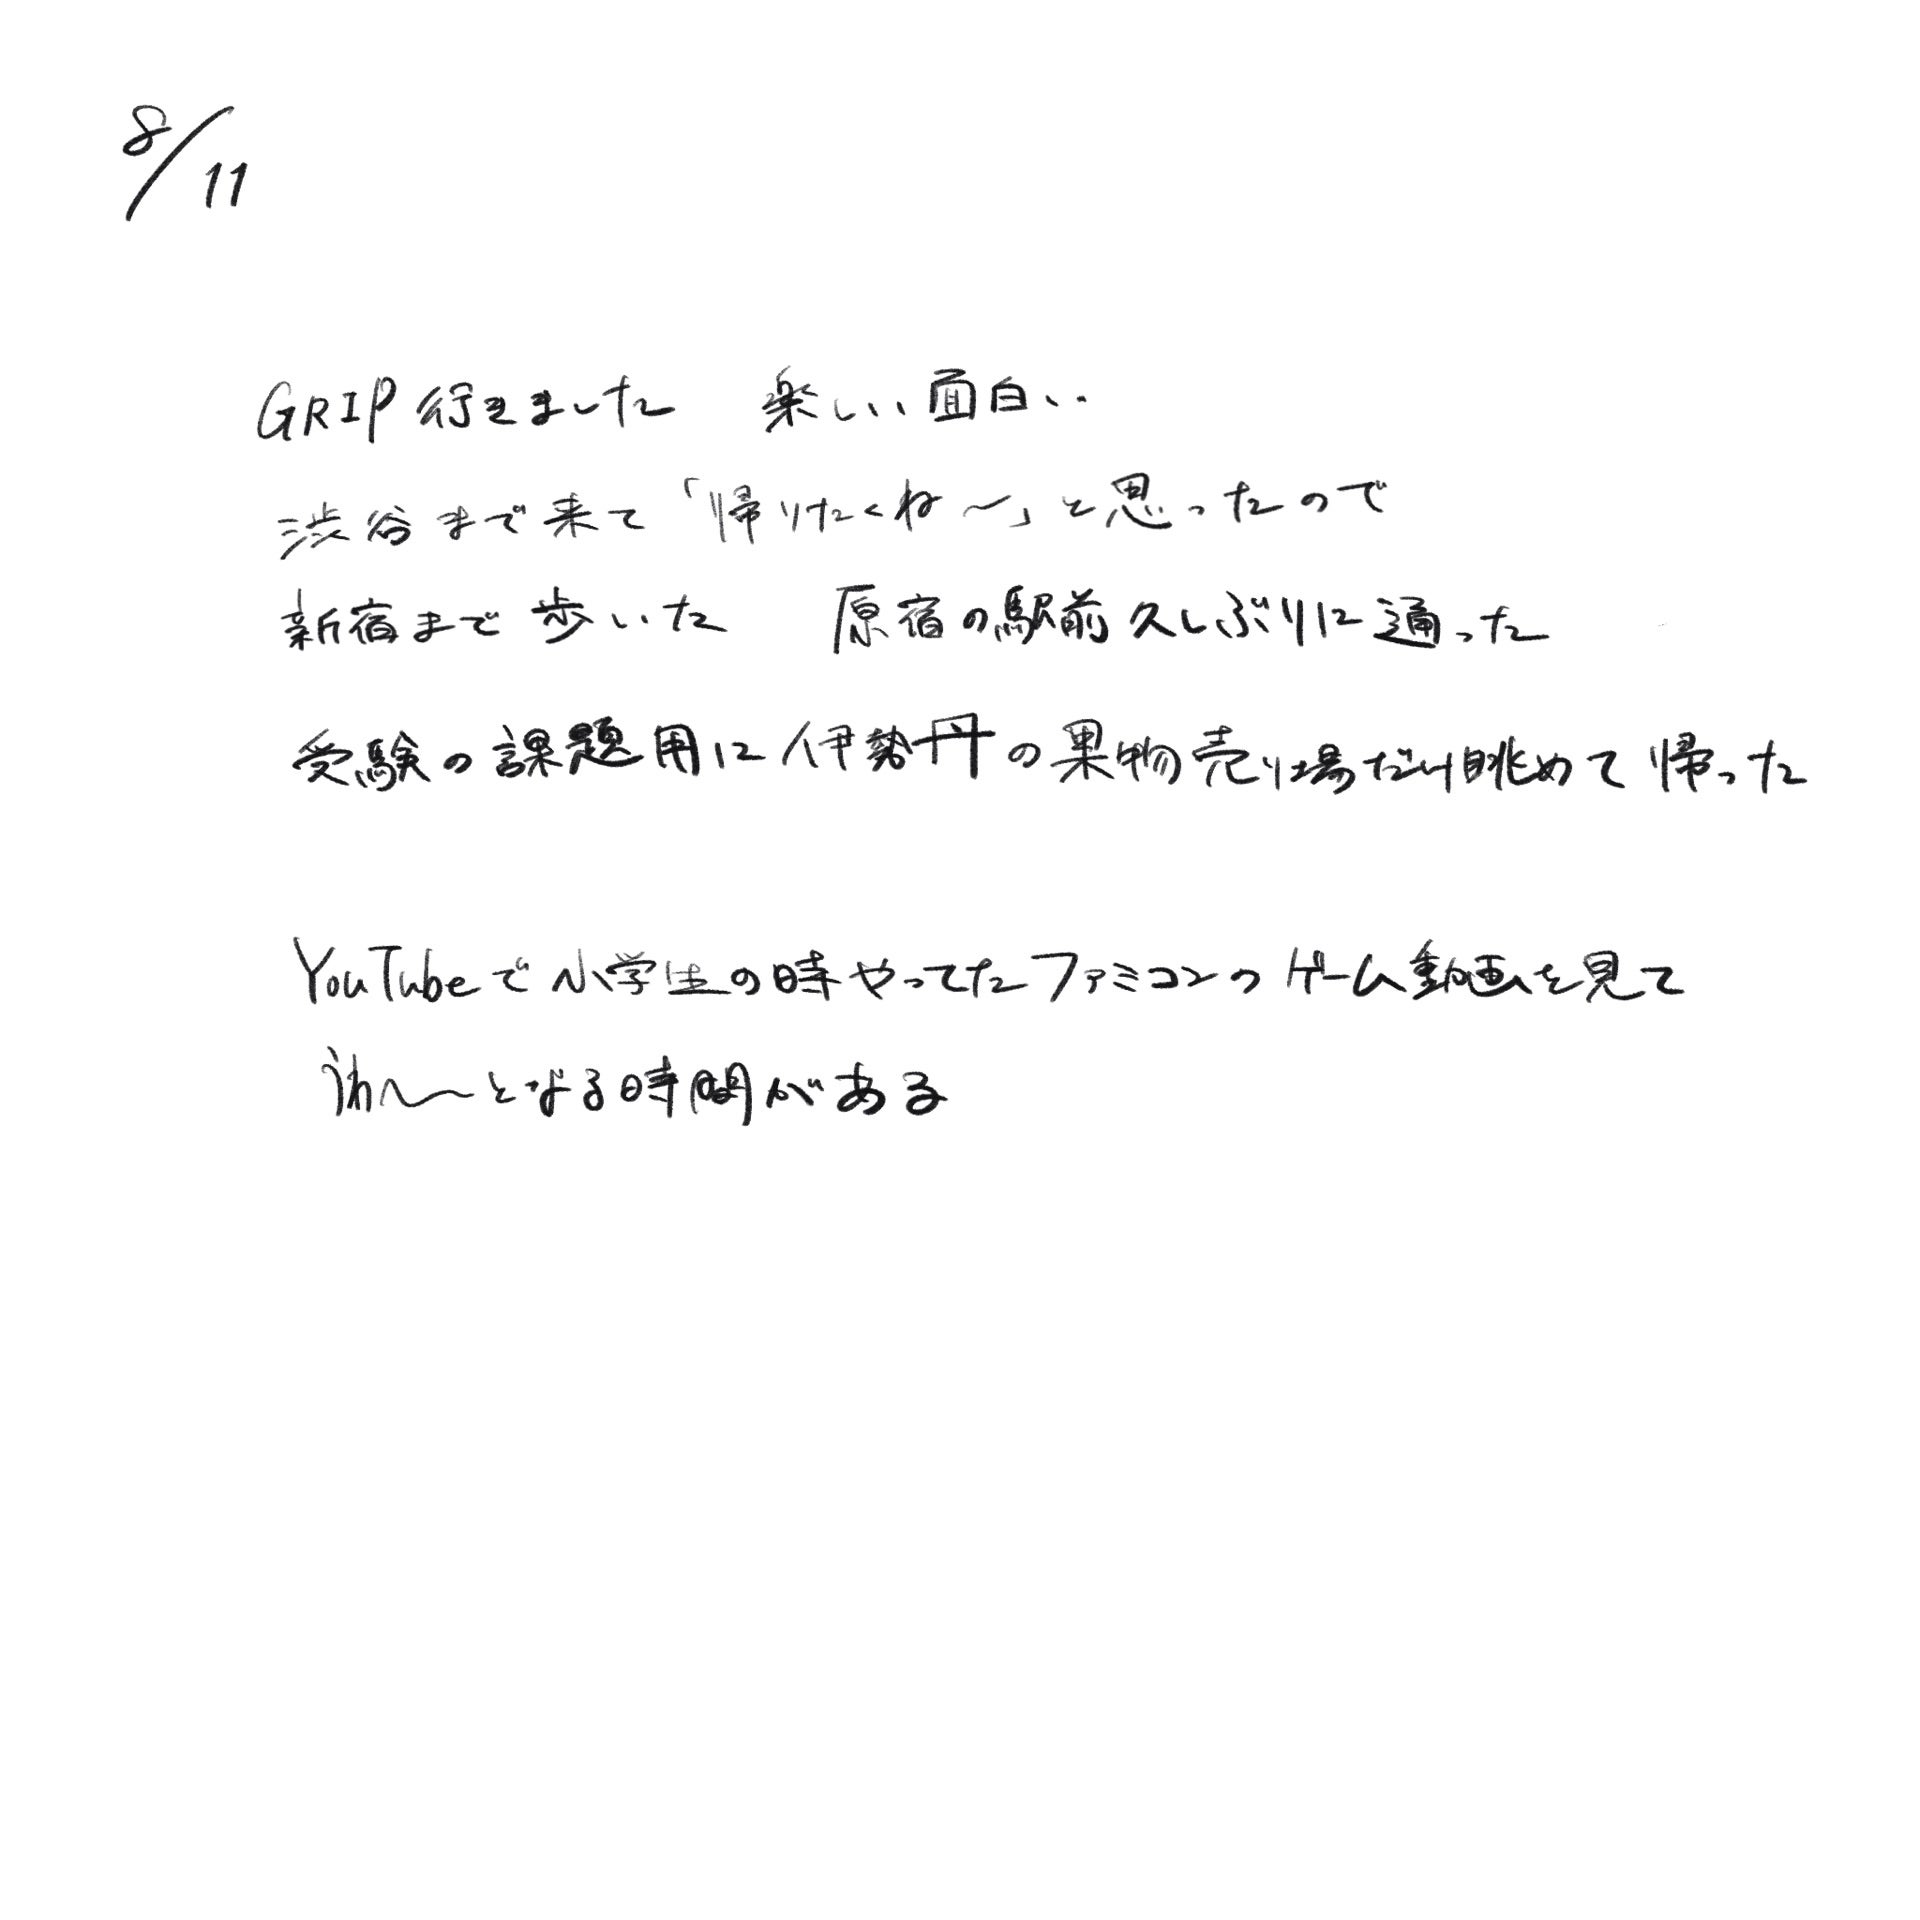 8/11
GRIP 行きました 楽しい 面白い
渋谷まで来て「帰りたくね〜」と思ったので
新宿まで歩いた 原宿の駅前久しぶりに通った
受験の課題用に伊勢丹の果物売り場だけ眺めて帰った
YouTubeで小学生の時やってたファミコンのゲーム動画を見て
〜となる時間がある